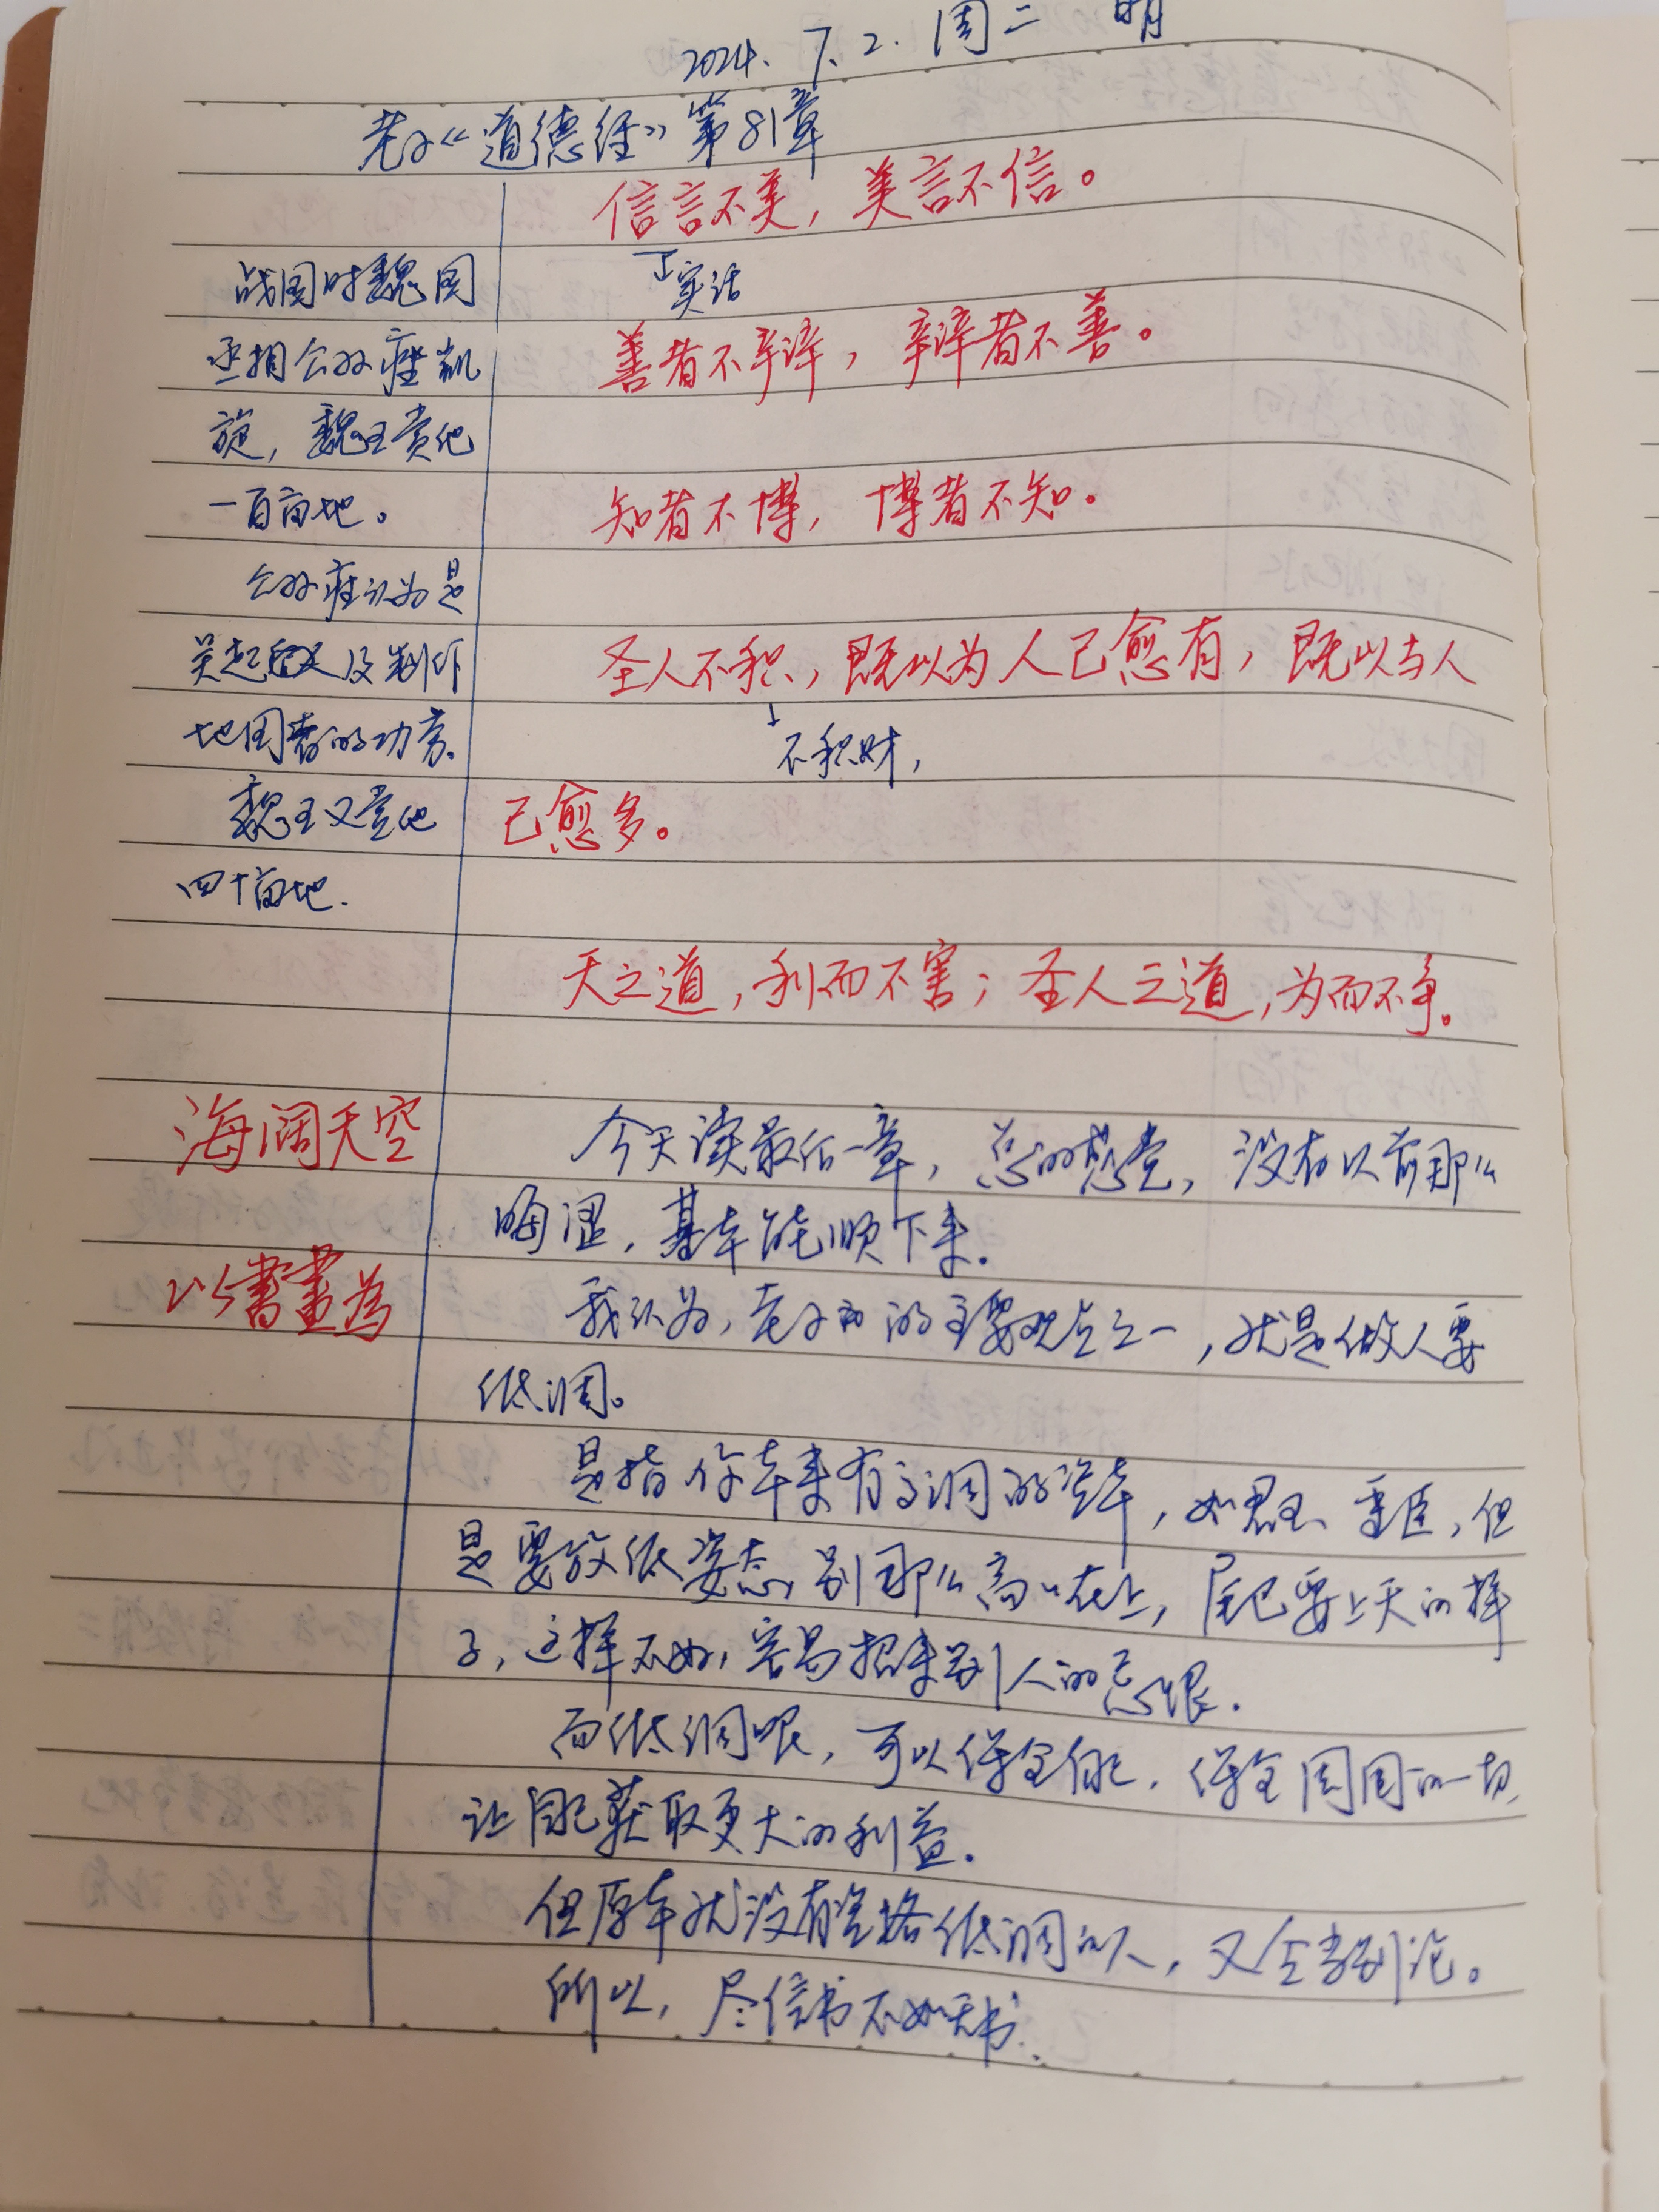 2024.7.2.周二 晴
老子《道德经》第81章
信言不美，美言不信。
实话
善者不辩，辩者不善。
知者不博，博者不知。
圣人不积，既以为人己愈有，既以与人
不积财，
己愈多。
天之道，利而不害；圣人之道，为而不争。
战国时魏国
丞相公叔痤凯
旋，魏王赏他
一百亩地。
公叔痤认为是
吴起 及制作
地图者的功劳。
魏王又赏他
四十亩地.
海阔天空
以書畫為
今天读最后一章，总的感觉，没有以前那么
晦涩，基本能顺下来。
我认为，老子的主要观点之一，就是做人要
低调。
是指你本来有高调的资本，如君王、重臣，但
是要放低姿态，别那么高高在上，尾巴要上天的样
子，这样不好，容易招来别人的忌恨.
而低调呢，可以保全自己，保全周围的一切，
让自己获取更大的利益.
但原本就没有资格低调的人，又会当别论。
所以，尽信书不如无书.